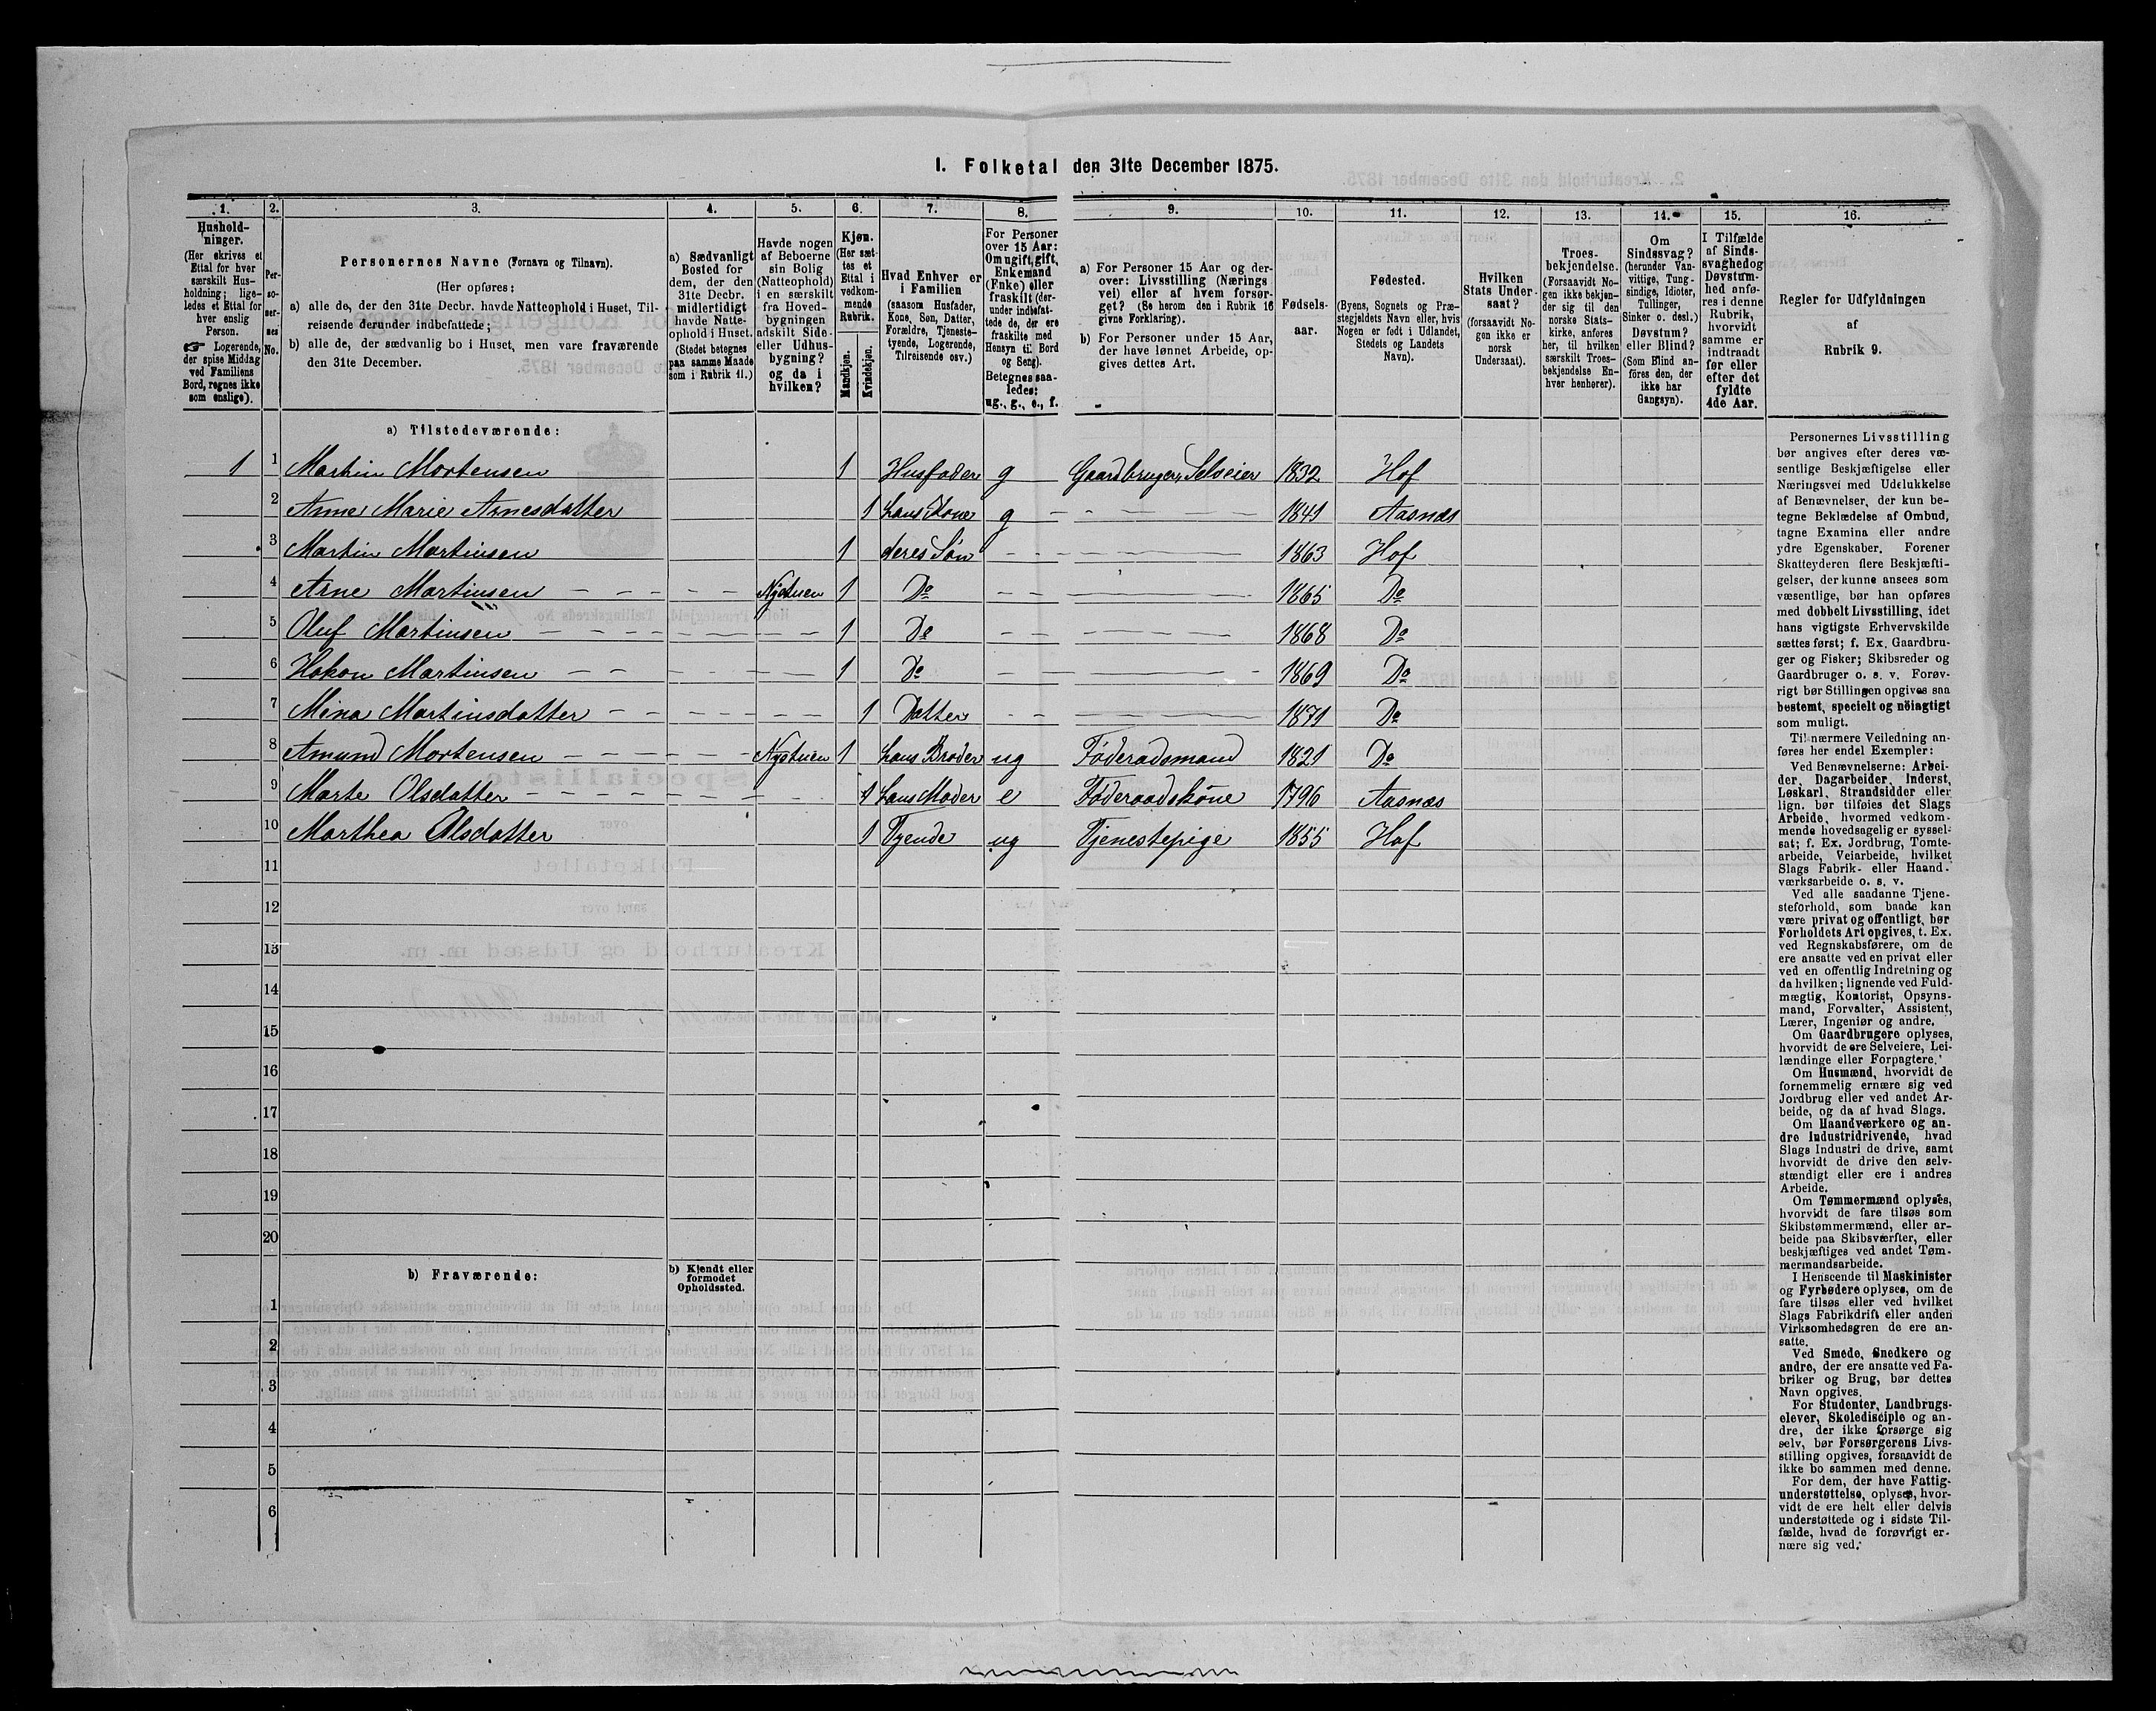 I. Folketal den 31te December 1875.
1. 2. 3. 4. 5. 6. 7. 8. 9. 10. 11. 12. 13. 14. 15. 16.
Hushold-
ninger.
(Her skrives et
Ettal for hver
særskilt Hus-
holdning; lige-
ledes et Ettal for
hver enslig
Person.
☞ Logerende,
der spise Middag
ved Familiens
Bord, regnes ikke
som enslige).
Per-
so-
ner-
nes
No.
Personernes Navne (Fornavn og Tilnavn).
(Her opføres:
a) alle de, der den 31te Decbr. havde Natteophold i Huset, Til-
reisende derunder indbefattede;
b) alle de, der sædvanlig bo i Huset, men vare fraværende
den 31te December.
a) Sædvanligt
Bosted for
dem, der den
31te Decbr.
midlertidigt
havde Natte-
ophold i Huset.
(Stedet betegnes
paa samme Maade
som i Rubrik 11.)
Havde nogen
af Beboerne
sin Bolig
(Natteophold)
i en særskilt
fra Hoved-
bygningen
adskilt Side-
eller Udhus-
bygning?
og da i
hvilken?
Kjøn.
(Her sæt-
tes et
Ettal i
vedkom-
mende
Rubrik.
Mandkjøn.
Kvindekjøn.
Hvad Enhver er
i Familien
(saasom Husfader,
Kone, Søn, Datter,
Forældre, Tjeneste-
tyende, Logerende,
Tilreisende osv.)
For Personer
over 15 Aar:
Om ugift, gift,
Enkemand
(Enke) eller
fraskilt (der-
under indbefat-
tede de, der ere
fraskilte med
Hensyn til Bord
og Seng).
Betegnes saa-
ledes:
ug., g., e., f.
a) For Personer 15 Aar og der-
over: Livsstilling (Nærings
vei) eller af hvem forsør-
get? (Se herom den i Rubrik 16
givne Forklaring).
b) For Personer under 15 Aar,
der have lønnet Arbeide, op-
gives dettes Art.
Fødsels-
aar.
Fødested.
(Byens, Sognets og Præ-
stegjeldets Navn eller, hvis
Nogen er født i Udlandet,
Stedets og Landets
Navn).
Hvilken
Stats Under-
saat?
(forsaavidt No-
gen ikke er
norsk
Undersaat).
Troes-
bekjendelse.
(Forsaavidt No-
gen ikke bekjen-
der sig til den
norske Stats-
kirke, anføres
her, til hvilken
særskilt Troes-
bekjendelse En-
hver henhører).
Om
Sindssvag?
(herunder Van-
vittige, Tung-
sindige, Idioter,
Tullinger,
Sinker o. desl.)
Døvstum?
eller Blind?
(Som Blind an-
føres den, der
ikke har
Gangsyn).
I Tilfælde
af Sinds-
svaghed og
Døvstum-
hed anfø-
res i denne
Rubrik,
hvorvidt
samme er
indtraadt
før eller
efter det
fyldte
4de Aar.
Regler for Udfyldningen
af
Rubrik 9.
a) Tilstedeværende:
1 1 Martin Mortensen 1 Husfader g Gaardbruger, Selveier 1832 Hof
2 Anne Marie Arnesdatter 1 hans Kone g 1841 Aasnæs
3 Martin Martinsen 1 deres Søn 1863 Hof
4 Arne Martinsen Nystuen 1 Do 1865 Do
5 Oluf Martinsen 1 Do 1868 Do
6 Hakon Martinsen 1 Do 1869 Do
7 Mina Martinsdatter 1 Datter 1871 Do
8 Amund Mortensen Nystuen 1 hans Broder ug Föderadsmand 1821 Do
9 Marte Olsdatter 1 hans Moder e Föderaadskone 1796 Aasnæs
10 Marthea Olsdatter 1 Tyende ug Tjenestepige 1855 Hof
11
12
13
14
15
16
17
18
19
20
b) Fraværende:
b) Kjendt eller
formodet
Opholdssted.
1
2
3
4
5
6
Personernes Livsstilling
bør angives efter deres væ-
sentlige Beskjæftigelse eller
Næringsvei med Udelukkelse
af Benævnelser, der kun be-
tegne Beklædelse af Ombud,
tagne Examina eller andre
ydre Egenskaber. Forener
Skatteyderen flere Beskjæfti-
gelser, der kunne ansees som
væsentlige, bør han opføres
med dobbelt Livsstilling, idet
hans vigtigste Erhvervskilde
sættes først; f. Ex. Gaardbru-
ger og Fisker; Skibsreder og
Gaardbruger o. s. v. Forøv-
rigt bør Stillingen opgives saa
bestemt, specielt og nöiagtigt
som muligt.
Til nærmere Veiledning an-
føres her endel Exempler:
Ved Benævnelserne: Arbei-
der, Dagarbeider, Inderst,
Løskarl, Strandsidder eller
lign. bør tilføies det Slags
Arbeide, hvormed vedkom-
mende hovedsagelig er syssel-
sat; f. Ex. Jordbrug, Tomte-
arbeide, Veiarbeide, hvilket
Slags Fabrik- eller Haand-
værksarbeide o. s. v.
Ved alle saadanne Tjene-
steforhold, som baade kan
være privat og offentligt, bør
Forholdets Art opgives, t. Ex.
ved Regnskabsførere, om de
ere ansatte ved en privat eller
ved en offentlig Indretning og
da hvilken; lignende ved Fuld-
mægtig, Kontorist, Opsyns-
mand, Forvalter, Assistent,
Lærer, Ingeniør og andre.
Om Gaardbrugere oplyses,
hvorvidt de ere Selveiere, Lei-
lændinge eller Forpagtere.
Om Husmænd, hvorvidt de
fornemmelig ernære sig ved
Jordbrug eller ved andet Ar-
beide, og da af hvad Slags.
Om Haandværkere og an-
dre Industridrivende, hvad
Slags Industri de drive, samt
hvorvidt de drive den selv-
stændigt eller ere i andres
Arbeide.
Om Tømmermænd oplyses,
hvorvidt de fare tilsøs som
Skibstømmermænd, eller ar-
beide paa Skibsværfter, eller
beskjæftiges ved andet Tøm-
mermandsarbeide.
I Henseende til Maskinister
og Fyrbødere oplyses, om de
fare tilsøs eller ved hvilket
Slags Fabrikdrift eller anden
Virksomhedsgren de ere an-
satte.
Ved Smede, Snedkere og
andre, der ere ansatte ved Fa-
briker og Brug, bør dettes
Navn opgives.
For Studenter, Landbrugs-
elever, Skoledisciple og an-
dre, der ikke forsørge sig
selv, bør Forsørgerens Livs-
stilling opgives, forsaavidt de
ikke bo sammen med denne.
For dem, der have Fattig-
understøttelse, oplyses, hvor-
vidt de ere helt eller delvis
understøttede og i sidste Til-
fælde, hvad de forøvrigt er-
nære sig ved.